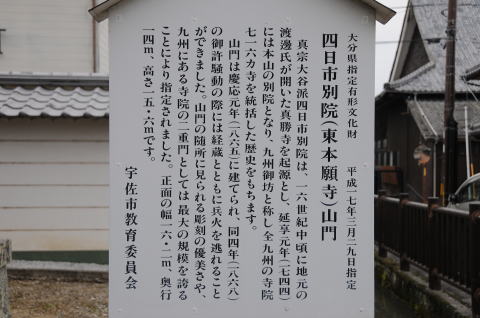 大分県指定有形文化財
平成一七年三月二九日指定
四日市別院(東本願寺)山門
真宗大谷派四日市別院は、一六世紀中頃に地元の
渡邊氏が開いた真勝寺を起源とし、延享元年(一七四四)
には本山の別院となり、九州御坊と称し全九州の寺院
七一六カ寺を統括した歴史をもちます。
山門は慶応元年(一八六五)に建てられ、同四年(一八六八)
の御許騒動の際には経蔵とともに兵火を逃れること
ができました。山門の随所に見られる彫刻の優美さや、
九州にある寺院の二重門としては最大の規模を誇る
ことにより指定されました。正面の幅一六・二m、奥行
一四m、高さ一五・六mです。
宇佐市教育委員会